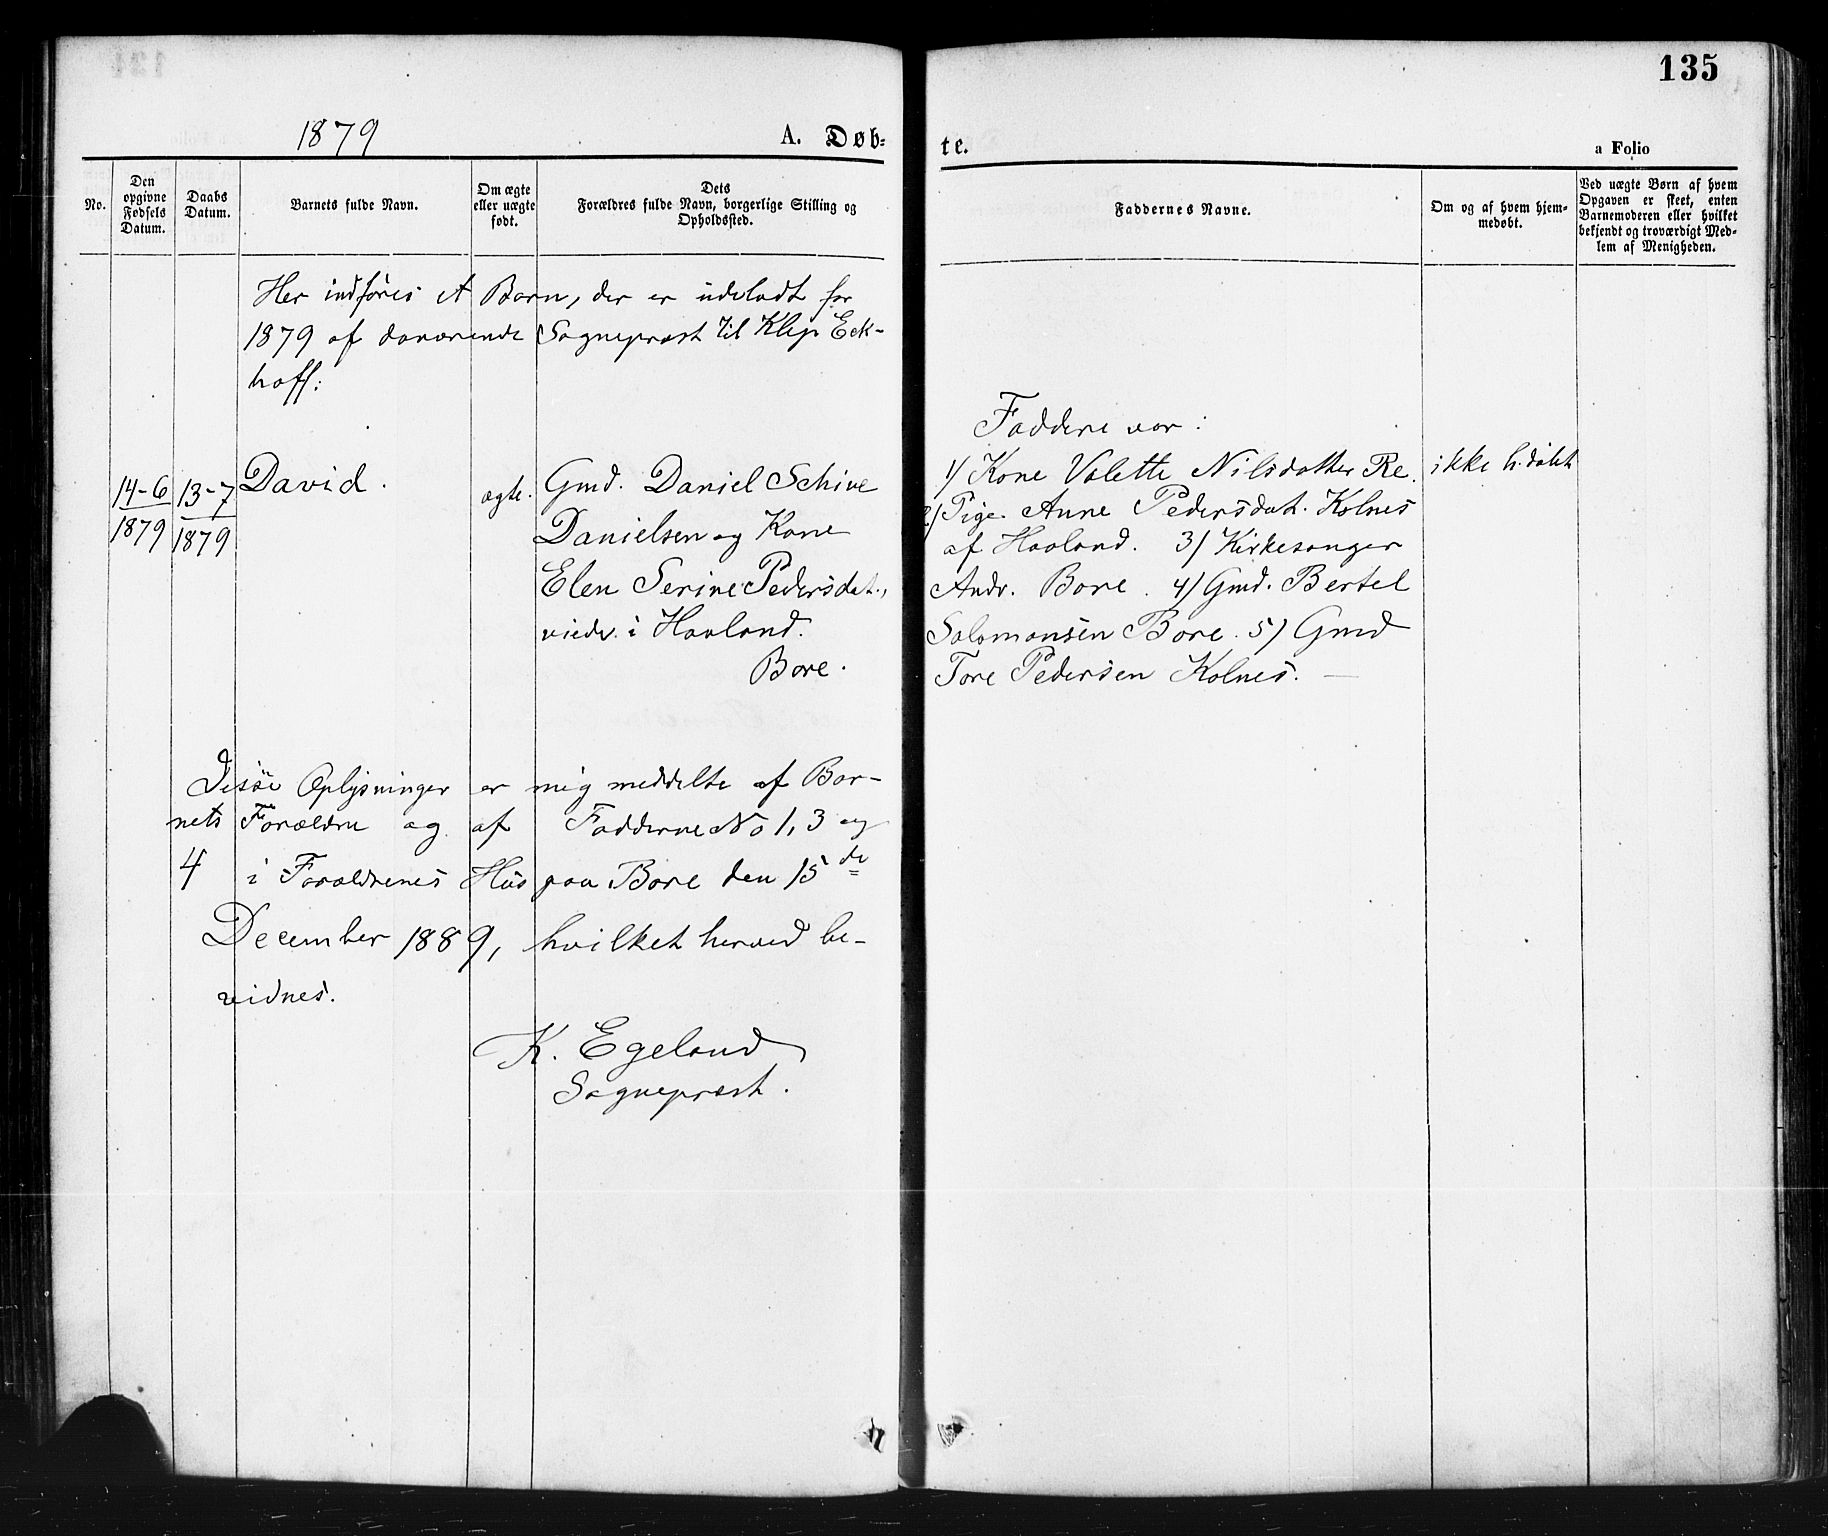 135
1879
A. Døb=
te.
a Folio
No.
Den
opgivne
Fødsels
Datum.
Daabs
Datum.
Barnets fulde Navn.
Om ægte
eller uægte
født.
Dets
Forældres fulde Navn, borgerlige Stilling og
Opholdssted.
Faddernes Navne.
Om og af hvem hjem-
medøbt.
Ved uægte Børn af hvem
Opgaven er skeet, enten
Barnemoderen eller hvilket
bekjendt og troværdigt Med-
lem af Menigheden.
Her indføres et Barn, der er udeladt for
1879 af daværende Sogneprest til Klep Eck-
hoff:
14-6
1879
13-7
1879
David.
ægte.
Gmd. Daniel Schive
Danielsen og Kone
Elen Serine Pedersdat.,
viede i Haaland.
Bore.
Faddere var:
1/ Kone Valette Nilsdatter Re.
2/ Pige Anne Pedersdat. Kolnes
af Haaland. 3/ Kirkesanger
Andr. Bore. 4/ Gmd. Bertel
Salomonsen Bore. 5/ Gmd
Tore Pedersen Kolnes. —
ikke h.døbt
Disse Oplysninger er mig meddelte af Bar-
nets Forældre og af Fadderne No 1, 3 og
4 i Forældrenes Hus paa Bore den 15de
December 1889, hvilket herved be-
vidnes.
K. Egeland
Sogneprest.